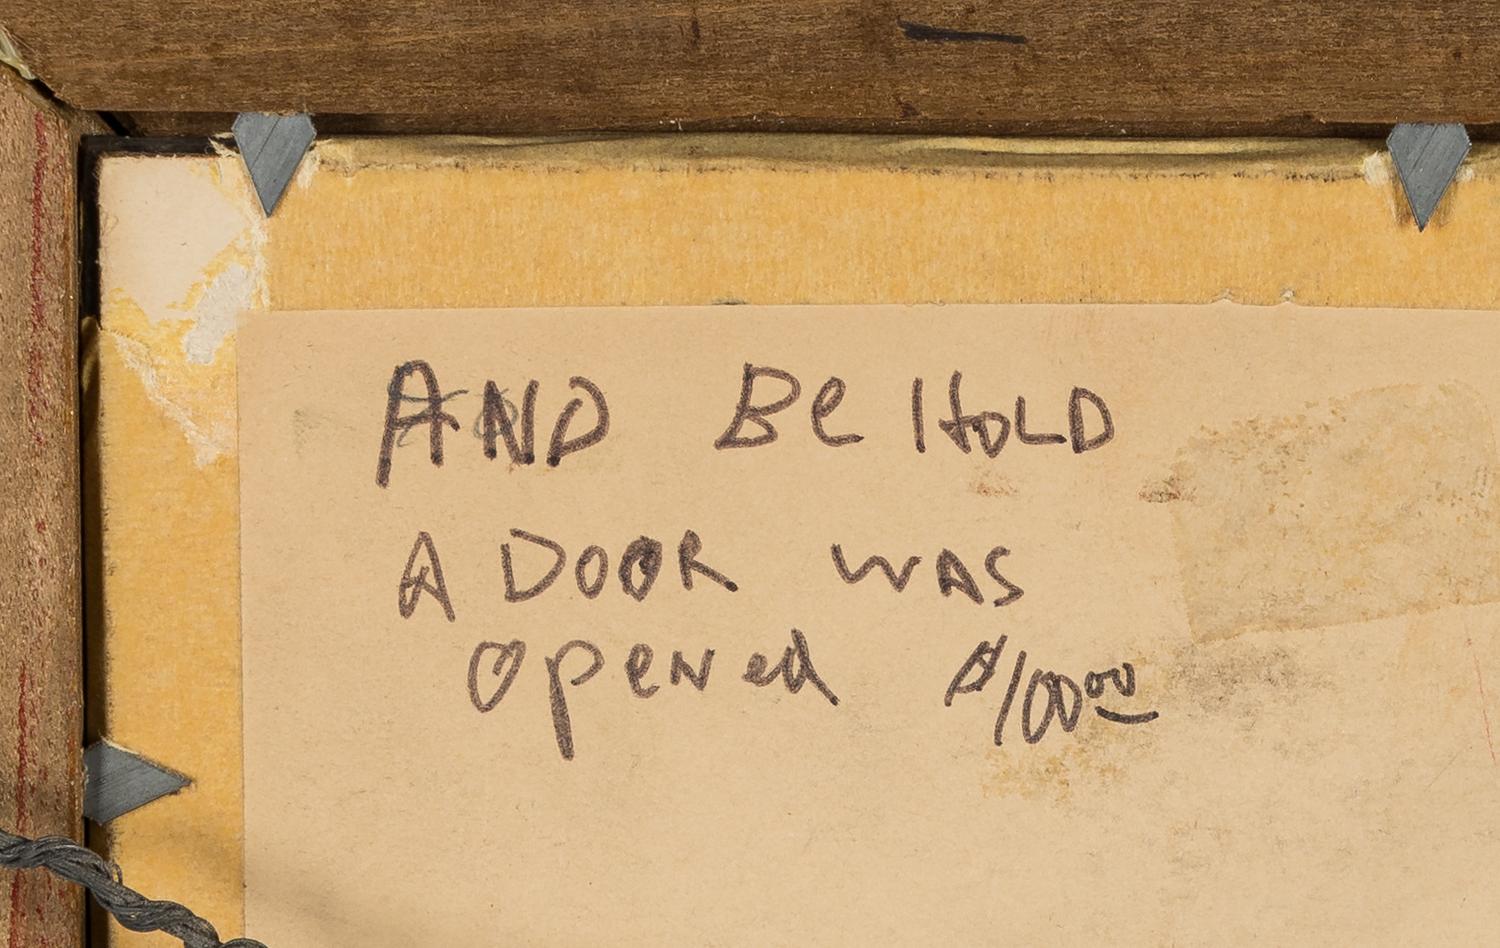 AND BeHOLD
A DOOR WAS
OpeNed $100⁰⁰